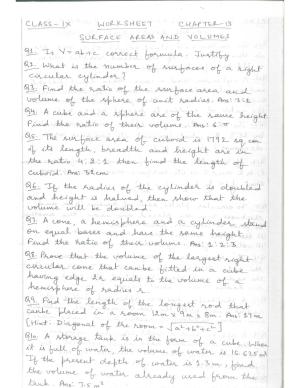 CLASS-IX WORKSHEET CHAPTER-13
SURFACE AREAS AND VOLUMES
Q1. Is V=abc correct formula. Justify
Q2. What is the number of surfaces of a right
circular cylinder?
Q3. Find the ratio of the surface area and
volume of the sphere of unit radius.
Q4. A cube and a sphere are of the same height
Find the ratio of their volume. Ans: 6:π
Q5. The surface area of cuboid is 1792 sq cm
if its length, breadth and height are in
the ratio 4:2:1 then find the length of
cuboid. Ans: 32cm
Q6. If the radius of the cylinder is doubled
and height is halved, then show that the
volume will be doubled.
Q7. A cone, a hemisphere and a cylinder stand
on equal bases and have the same height.
Find the ratio of their volume. Ans: 1:2:3
Q8. Prove that the volume of the largest right
circular cone that can be fitted in a cube
having edge 2r equals to the volume of a
hemisphere of radius r.
Q9. Find the length of the longest rod that
can be placed in a room 12m x 9m x 8m. Ans: 17m
[Hint. Diagonal of the room = √a²+b²+c²]
Q10. A storage tank is in the form of a cube. When
it is full of water, the volume of water is 15.625m³
If the present depth of water is 1.3m, find
the volume of water already used from the
tank. Ans: 7.5m³